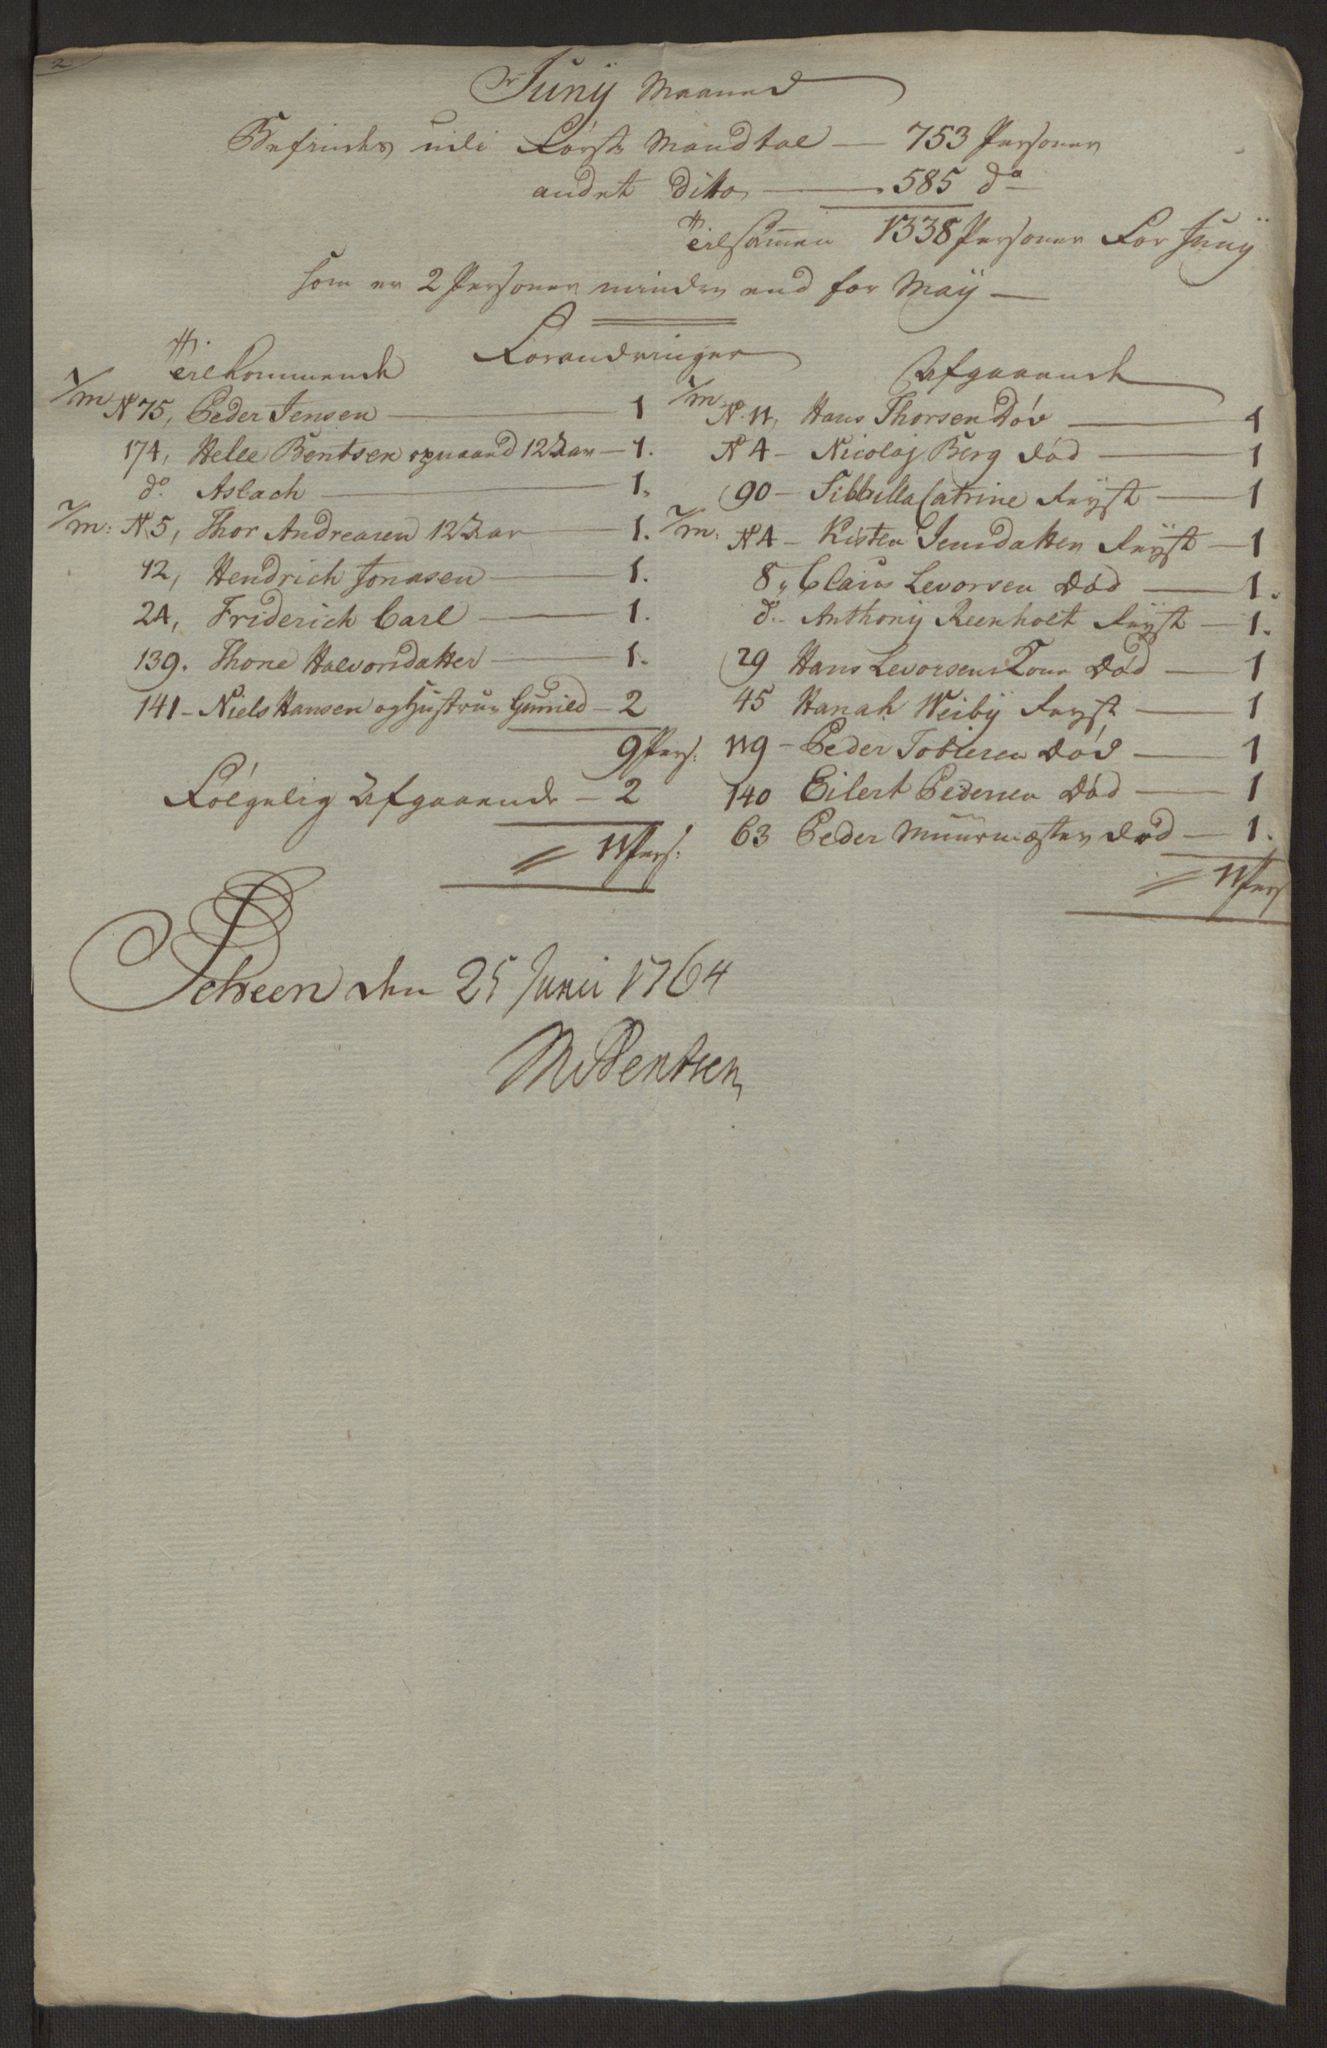 2
Juny Maaned
Befindes udi Første Mandtal — 753 Personer
andet Ditto — 585 do
Tilsammen 1338 Personer For Juny
som er 2 Personer mindre end for May —
Forandringer
Tilkommende
1/m N 75, Peder Jensen — 1
174, Helle Bentsen opnaaed 12 Aar — 1.
do. Aslach — 1.
2/m: N. 5, Thor Andreasen 12 Aar — 1.
12, Hendrich Jonasen — 1.
24, Friderich Carl — 1.
139. Thone Halvorsdatter — 1.
141 - Niels Hansen og Hustrue Gunild — 2
9 Pers:
Følgelig Afgaaende — 2
11 Pers:
Afgaaende
1/m N. 11, Hans Thorsen Død — 1
N 4 - Nicolaj Berg død — 1
90 - Sibbilla Catrine Reyst — 1
2/m: N 4 - Kisten Jensdatter Reyst — 1
8, Claus Levorsen død — 1.
do. Anthony Reenholt Reyst — 1.
29 Hans Levorsens Kone død — 1
45 Hanah Weiby Reyst — 1
119 - Peder Tobiesen død — 1
140 Eilert Pedersen død — 1
63 Peder Muurmester død — 1.
11 Pers
Scheen den 25 Junii 1764
M Bentsen